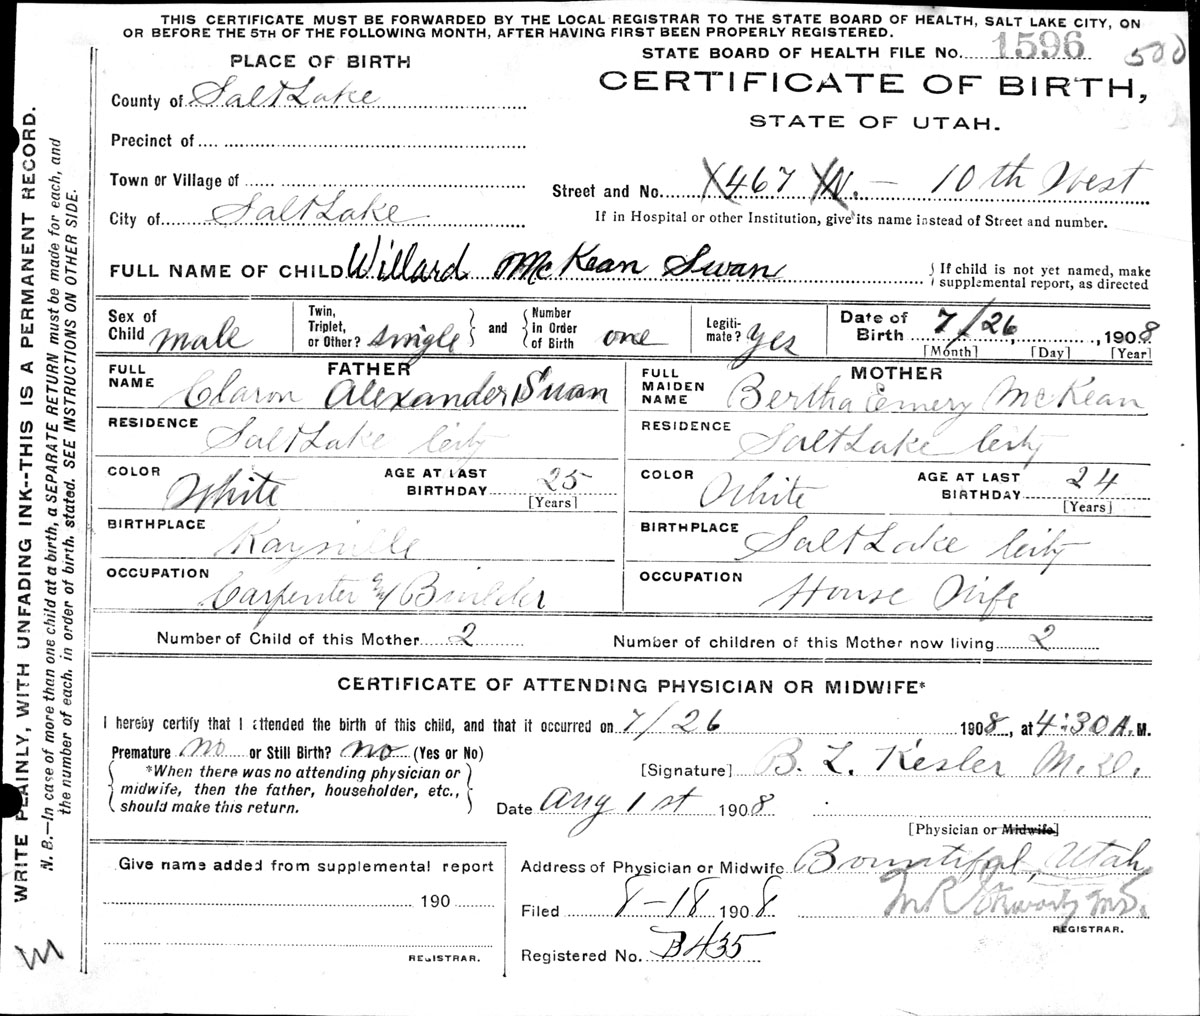 THIS CERTIFICATE MUST BE FORWARDED BY THE LOCAL REGISTRAR TO THE STATE BOARD OF HEALTH, SALT LAKE CITY, ON
OR BEFORE THE 5TH OF THE FOLLOWING MONTH, AFTER HAVING FIRST BEEN PROPERLY REGISTERED.
STATE BOARD OF HEALTH FILE NO. 1596
500
PLACE OF BIRTH
CERTIFICATE OF BIRTH,
STATE OF UTAH.
County of Salt Lake
Precinct of
Town or Village of
City of Salt Lake
Street and No. 467 N. - 10th West
If in Hospital or other Institution, give its name instead of Street and number.
FULL NAME OF CHILD Willard McKean Swan
{ If child is not yet named, make supplemental report, as directed
Sex of Child male
Twin, Triplet, or Other? single } and { Number in Order of Birth one
Legiti-mate? yes
Date of Birth 7/26, 1908
[Month] [Day] [Year]
FATHER
FULL NAME Claron Alexander Swan
RESIDENCE Salt Lake City
COLOR White AGE AT LAST BIRTHDAY 25 [Years]
BIRTHPLACE Kaysville
OCCUPATION Carpenter & Builder
MOTHER
FULL MAIDEN NAME Bertha Emery McKean
RESIDENCE Salt Lake City
COLOR White AGE AT LAST BIRTHDAY 24 [Years]
BIRTHPLACE Salt Lake City
OCCUPATION House Wife
Number of Child of this Mother 2 Number of children of this Mother now living 2
CERTIFICATE OF ATTENDING PHYSICIAN OR MIDWIFE*
I hereby certify that I attended the birth of this child, and that it occurred on 7/26 1908, at 4:30 A.M.
Premature no or Still Birth? no (Yes or No)
{ *When there was no attending physician or midwife, then the father, householder, etc., should make this return. }
[Signature] B. L. Kesler M.D.
Date Aug 1st 1908
[Physician or Midwife]
Give name added from supplemental report
190
REGISTRAR.
Address of Physician or Midwife Bountiful, Utah
Filed 8-18 1908
REGISTRAR.
Registered No. B435
WRITE PLAINLY, WITH UNFADING INK--THIS IS A PERMANENT RECORD.
N. B.—In case of more than one child at a birth, a SEPARATE RETURN must be made for each, and
the number of each, in order of birth, stated. SEE INSTRUCTIONS ON OTHER SIDE.